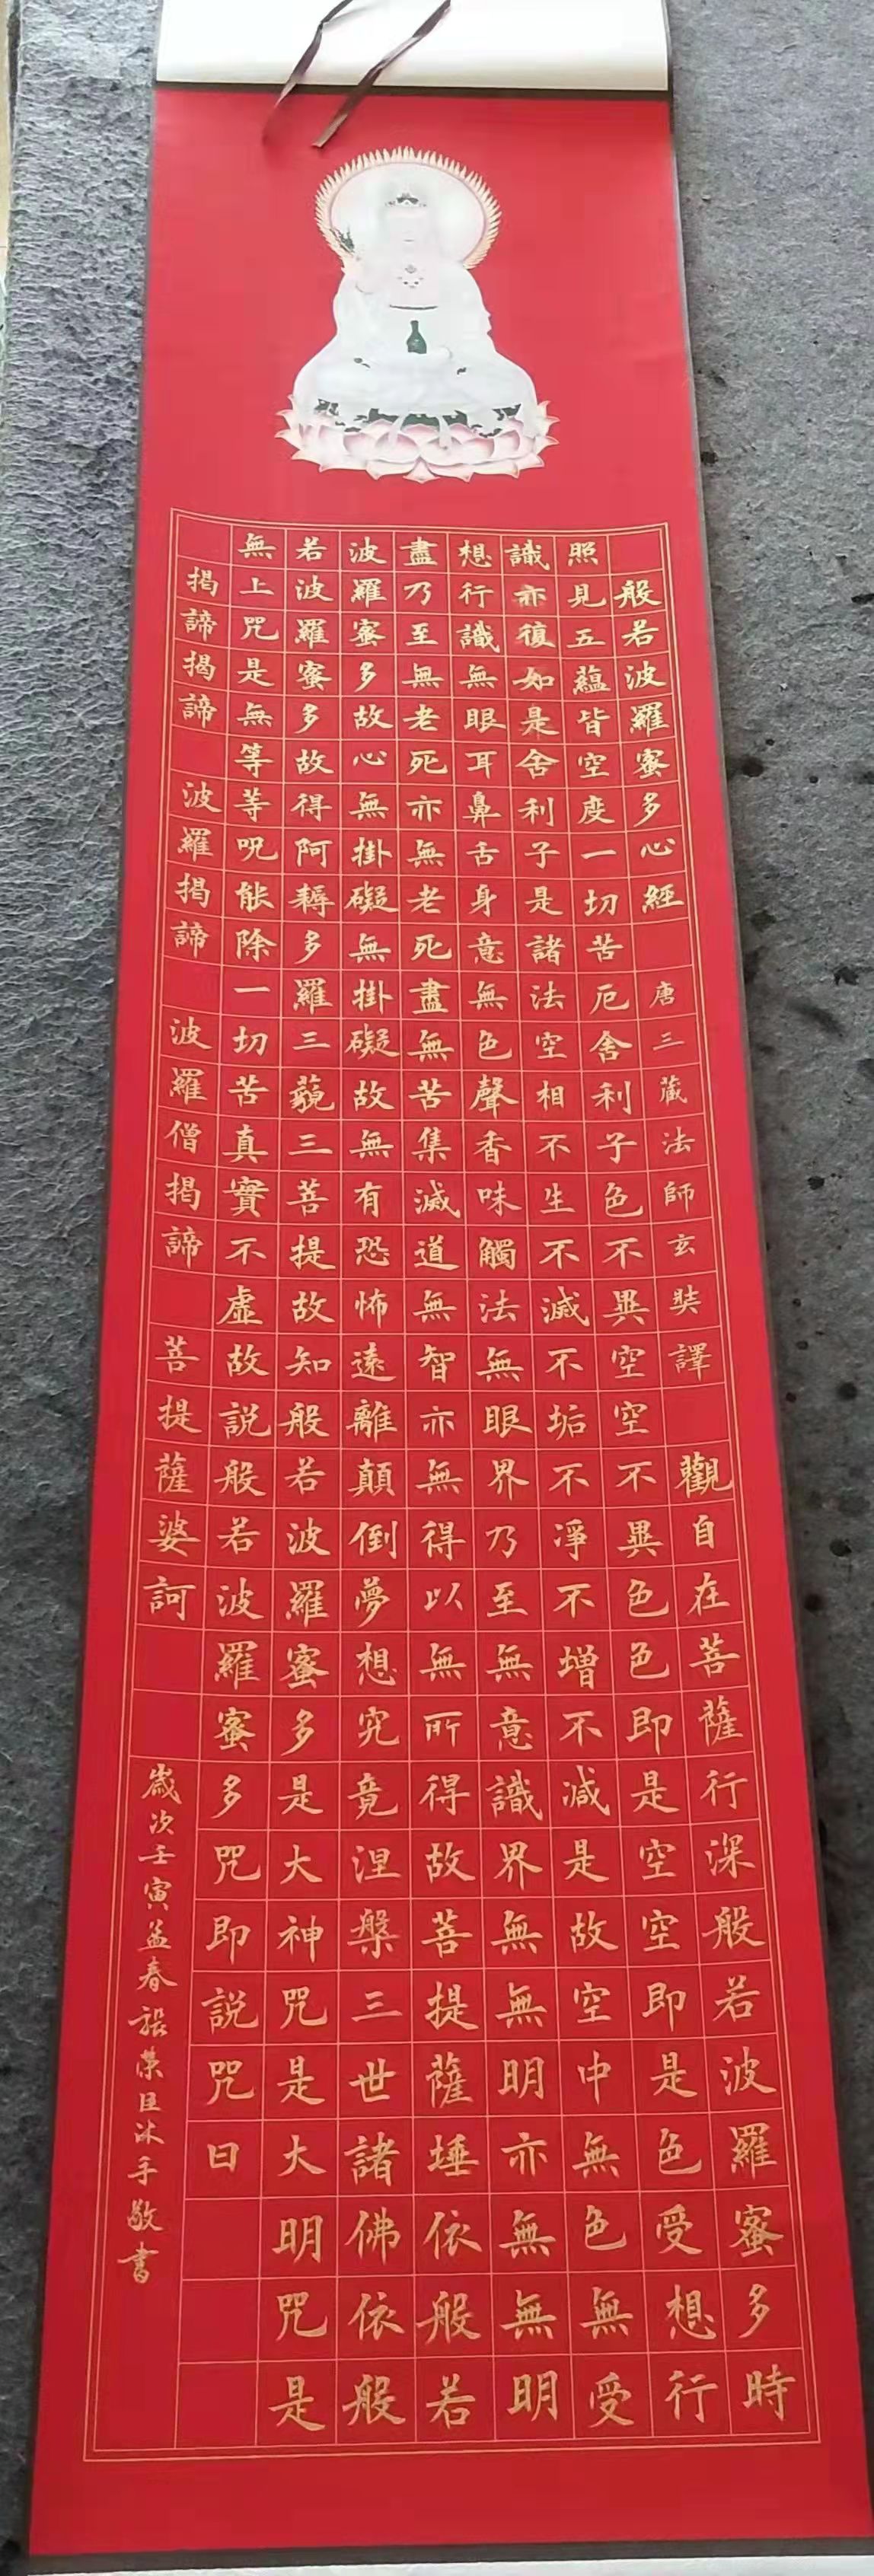 般若波羅蜜多心經 唐三藏法師玄奘譯 觀自在菩薩行深般若波羅蜜多時
照見五蘊皆空度一切苦厄舍利子色不異空空不異色色即是空空即是色受想行
識亦復如是舍利子是諸法空相不生不滅不垢不淨不增不減是故空中無色無受
想行識無眼耳鼻舌身意無色聲香味觸法無眼界乃至無意識界無無明亦無無明
盡乃至無老死亦無老死盡無苦集滅道無智亦無得以無所得故菩提薩埵依般若
波羅蜜多故心無掛礙無掛礙故無有恐怖遠離顛倒夢想究竟涅槃三世諸佛依般
若波羅蜜多故得阿耨多羅三藐三菩提故知般若波羅蜜多是大神咒是大明咒是
無上咒是無等等咒能除一切苦真實不虛故說般若波羅蜜多咒即說咒曰
揭諦揭諦 波羅揭諦 波羅僧揭諦 菩提薩婆訶
歲次壬寅孟春張榮臣沐手敬書